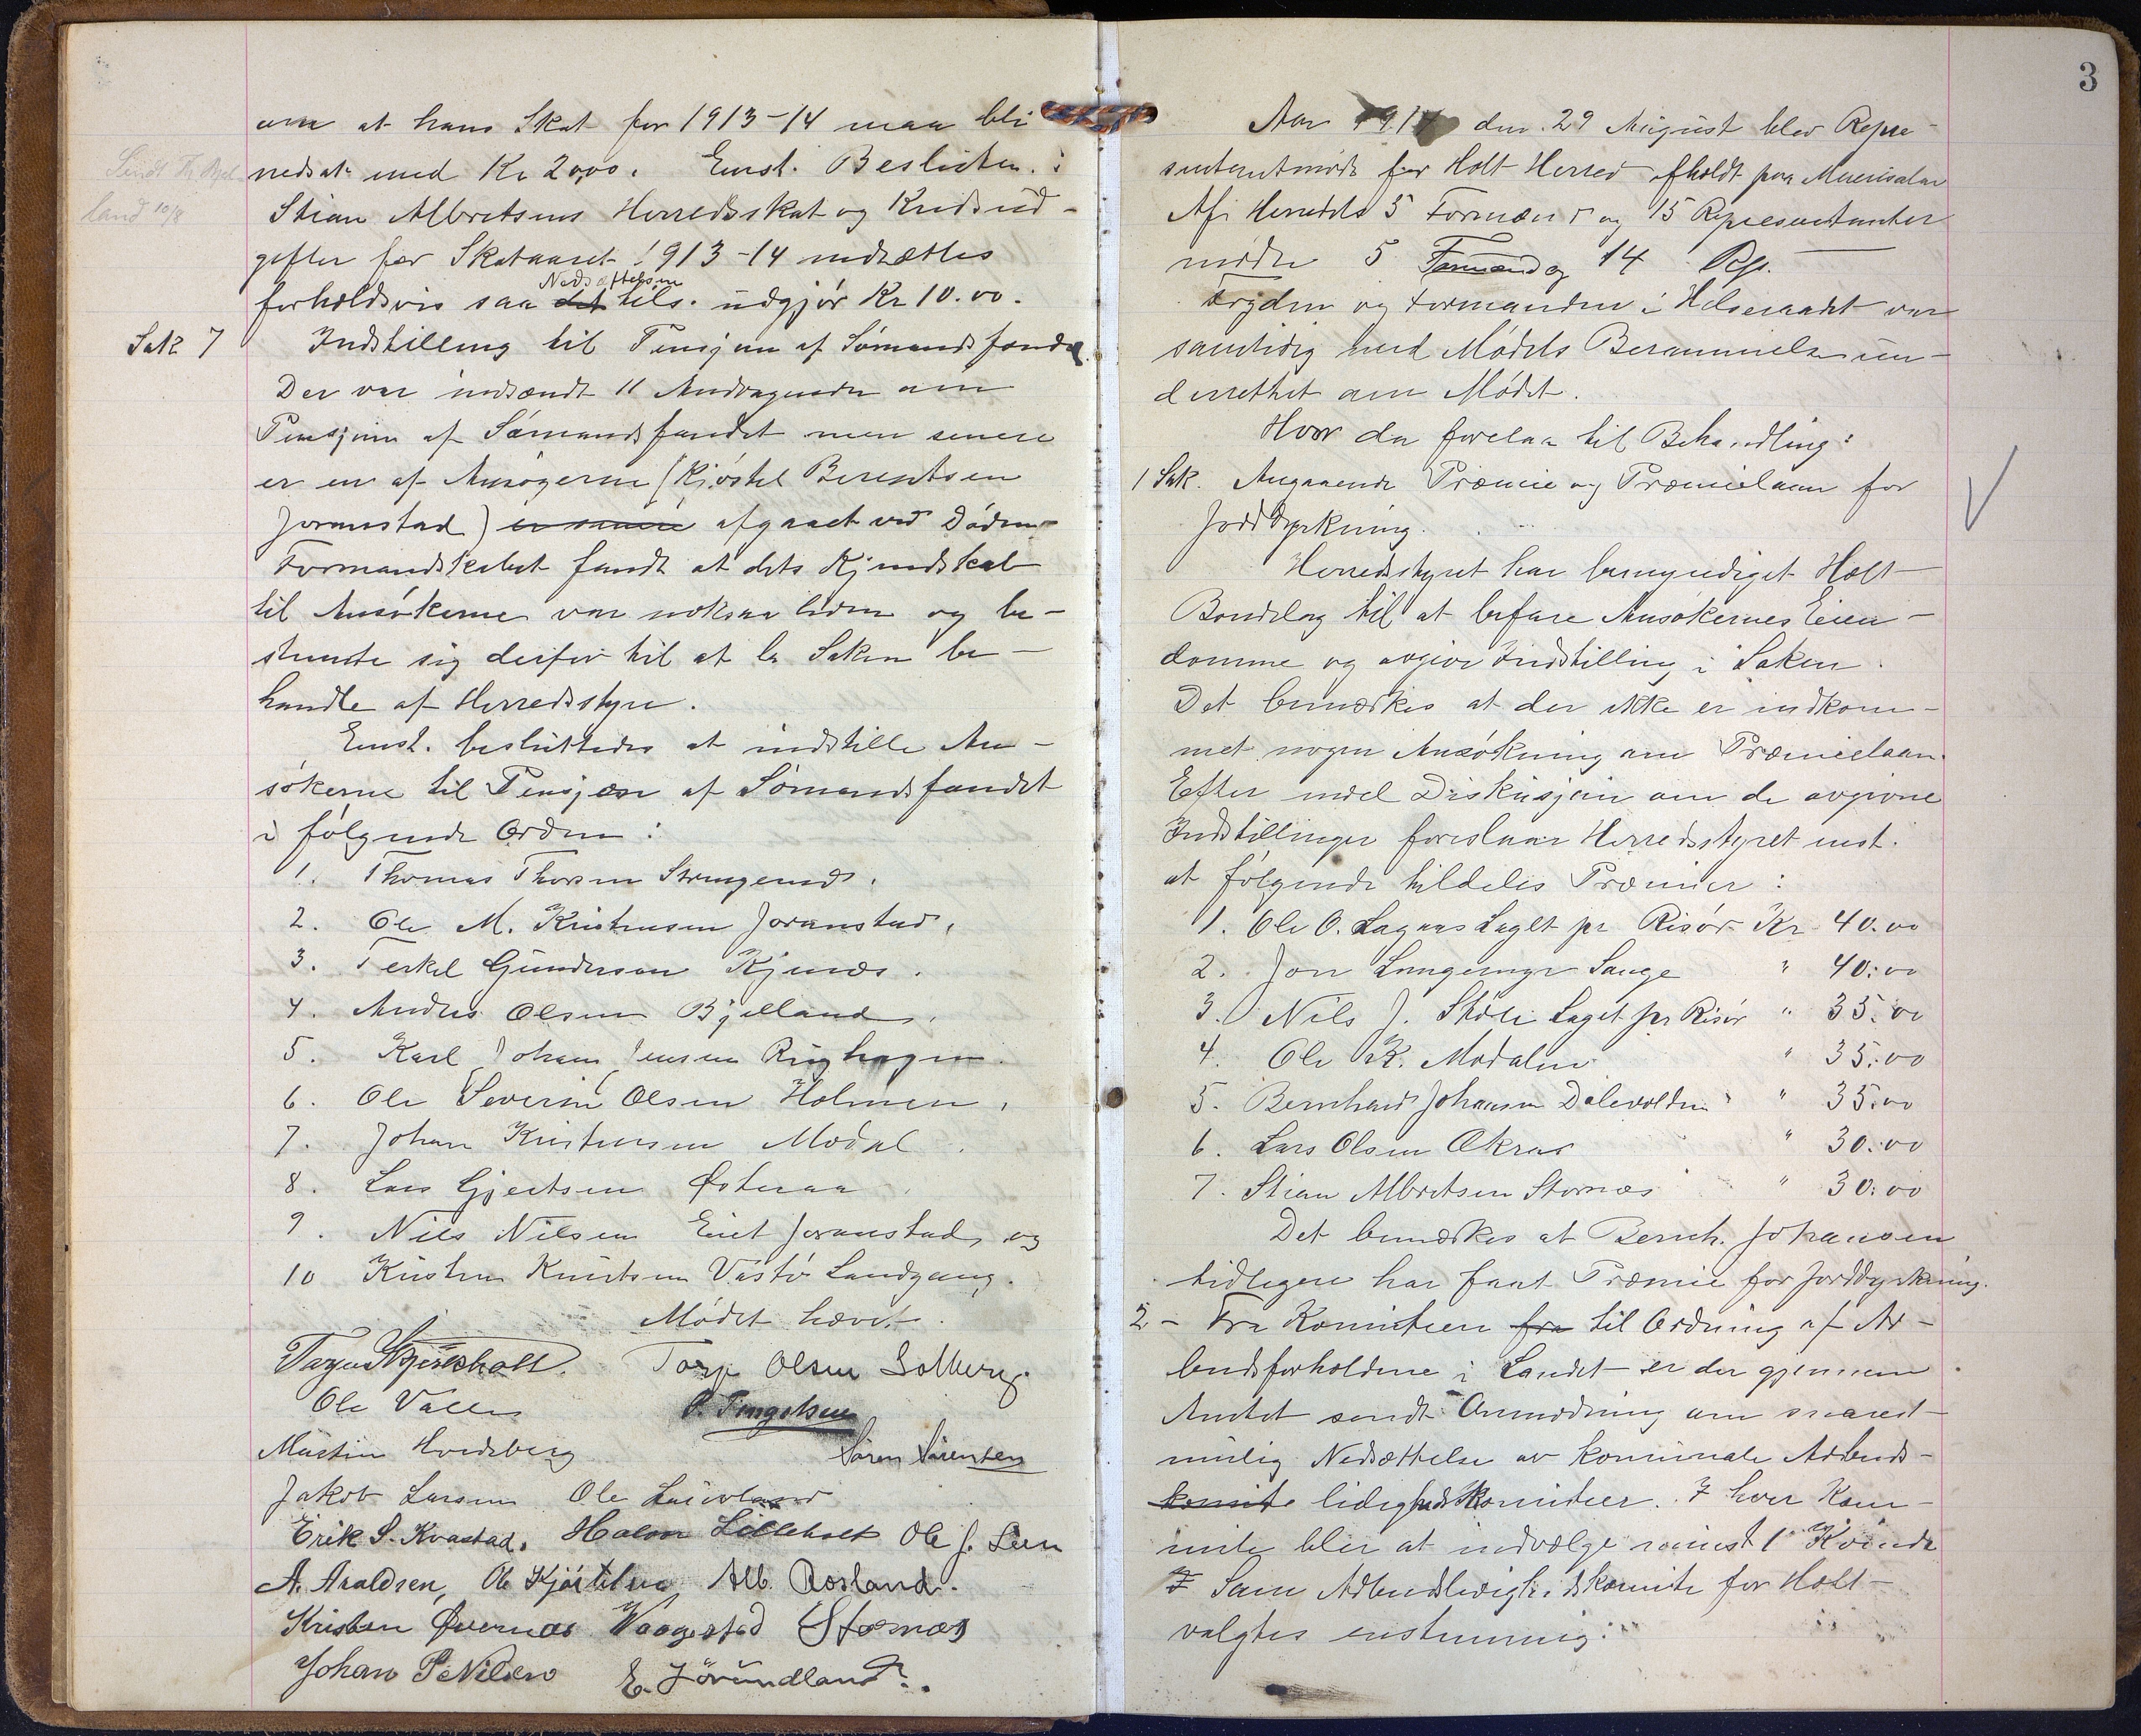 om at hans Skat for 1913-14 maa bli
nedsat med Kr 20,00. Enst. Besluten:
Stian Albretsens Herredsskat og Kredsud-
gifter for Skataaret 1913-14 nedsættes
forholdsvis saa det Nedsættelsen tils. udgjør Kr 10.00.
Sendt Th. Bjel
land 10/8
Sak 7 Indstilling til Pensjon af Sømandsfondet.
Der var indsendt 11 Andragender om
Pensjon af Sømandsfondet men senere
er en af Ansøgerne (Kjøstel Berentsen
Joranstad) er senere afgaaet ved Døden
Formandskabet fandt at dets Kjendskab
til Ansøkerne var noksaa liden og be-
stemte sig derfor til at la Saken be-
handle af Herredsstyre.
Enst. besluttedes at indstille An-
søkerne til Pensjon af Sømandsfondet
i følgende Orden:
1. Thomas Thorsen Strengereid.
2. Ole M. Kristensen Joranstad,
3. Terkel Gunderson Kjenes.
4. Anders Olsen Bjelland,
5. Karl Johan Jensen Ringhagen.
6. Ole Severin Olsen Holmen,
7. Johan Kristensen Modal.
8. Lars Gjertsen Østeraa.
9. Nils Nilsen Eiet Joranstad, og
10 Kristen Knutsen Vastø Landgang.
Mødet hævet.
Tarjus Skjerkholt. Torje Olsen Solberg
Ole Valle P. Tengelsen
Martin Hordsberg Søren Sørensen
Jakob Larsen Ole Laivoland
Erik S. Kvastad. Halvor Lilleholt Ole J. Lien
A. Araldsen, Ole Kjøstelsen Alb. Rosland.
Kristen Øvernæs Vaagestad Stornæs
Johan P Nilsen E. Jørundland.
3
Aar 1914 den 29 August blev Repre-
sentantmøde for Holt Herred afholdt paa Museisalen
Af Herredets 5 Formænd og 15 Representanter
mødte 5 Formænd og 14 Rep.
Fogden og Formanden i Helseraadet var
samtidig med Mødets Berammelse un-
derrettet om Mødet.
Hvor da forelaa til Behandling:
1 Sak. Angaaende Præmie og Præmielaan for
Jorddyrkning.
Herredsstyret har bemyndiget Holt
Bondelag til at befare Ansøkernes Eien-
domme og avgive Indstilling i Saken.
Det bemærkes at der ikke er indkom-
met nogen Ansøkning om Præmielaan.
Efter endel Diskusjon om de avgivne
Indstillinger foreslaar Herredsstyret enst.
at følgende tildeles Præmier:
1. Ole O. Lagaas Laget pr Risør Kr 40.00
2. Jon Lengemyr Sauge " 40.00
3. Nils J. Skole Laget pr Risør " 35.00
4. Ole K. Modalen " 35.00
5. Bernhard Johansen Dalevolden " 35.00
6. Lars Olsen Økraas " 30.00
7. Stian Albretsen Stornæs " 30.00
Det bemærkes at Bernh. Johansen
tidligere har faat Præmie for Jorddyrkning.
2 - Fra Komiteen fra til Ordning af Ar-
beidsforholdene i Landet er der gjennem
Amtet sendt Anmodning om snarest-
mulig Nedsættelse av komunale Arbeids-
komite ledighedskomiteer. I hver Kom-
mite blir at indvælge mindst 1 Kvinde
I Som Arbeidsledighedskomite for Holt
valgtes enstemmig: